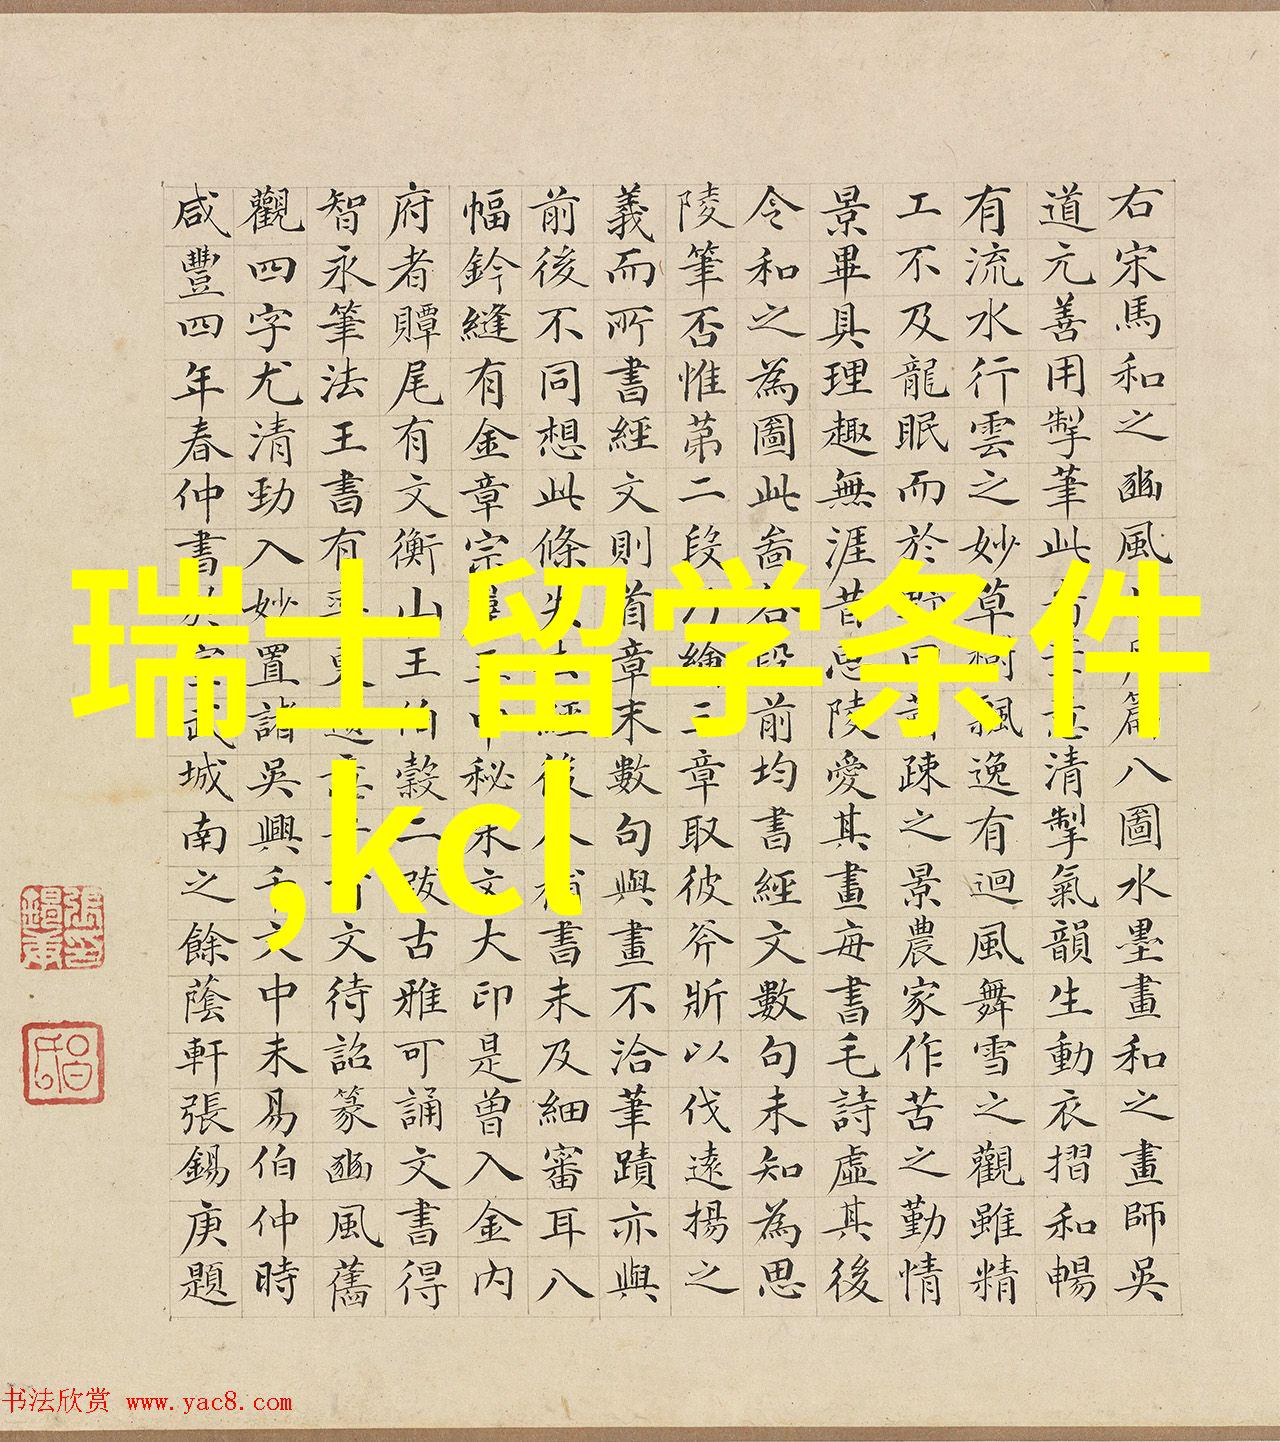 右宋馬和之豳風篇八圖水墨畫和之畫師吳
道元善用掣筆此清掣氣韻生動衣摺和暢
有流水行雲之妙草樹飄逸有迴風舞雪之觀雖精
工不及龍眠而於疎之景農家作苦之勤情
景畢具理趣無涯昔思陵愛其畫每書毛詩虛其後
令和之為圖此啚各段前均書經文數句未知為思
陵筆否惟第二段乃繪三章取彼斧斨以伐遠揚之
義而所書經文則首章末數句與畫不洽筆蹟亦與
前後不同想此條失去經後人補書未及細審耳八
幅鈐縫有金章宗中秘朱文大印是曾入金內
府者贉尾有文衡山王伯穀二跋古雅可誦文書得
智永筆法王書有文待詔篆豳風舊
觀四字尤清勁入妙置諸吳興千文中未易伯仲時
咸豐四年春仲書於宣武城南之餘蔭軒張錫庚題
瑞士留学条件
,kcl
书法欣赏 www.yac8.com